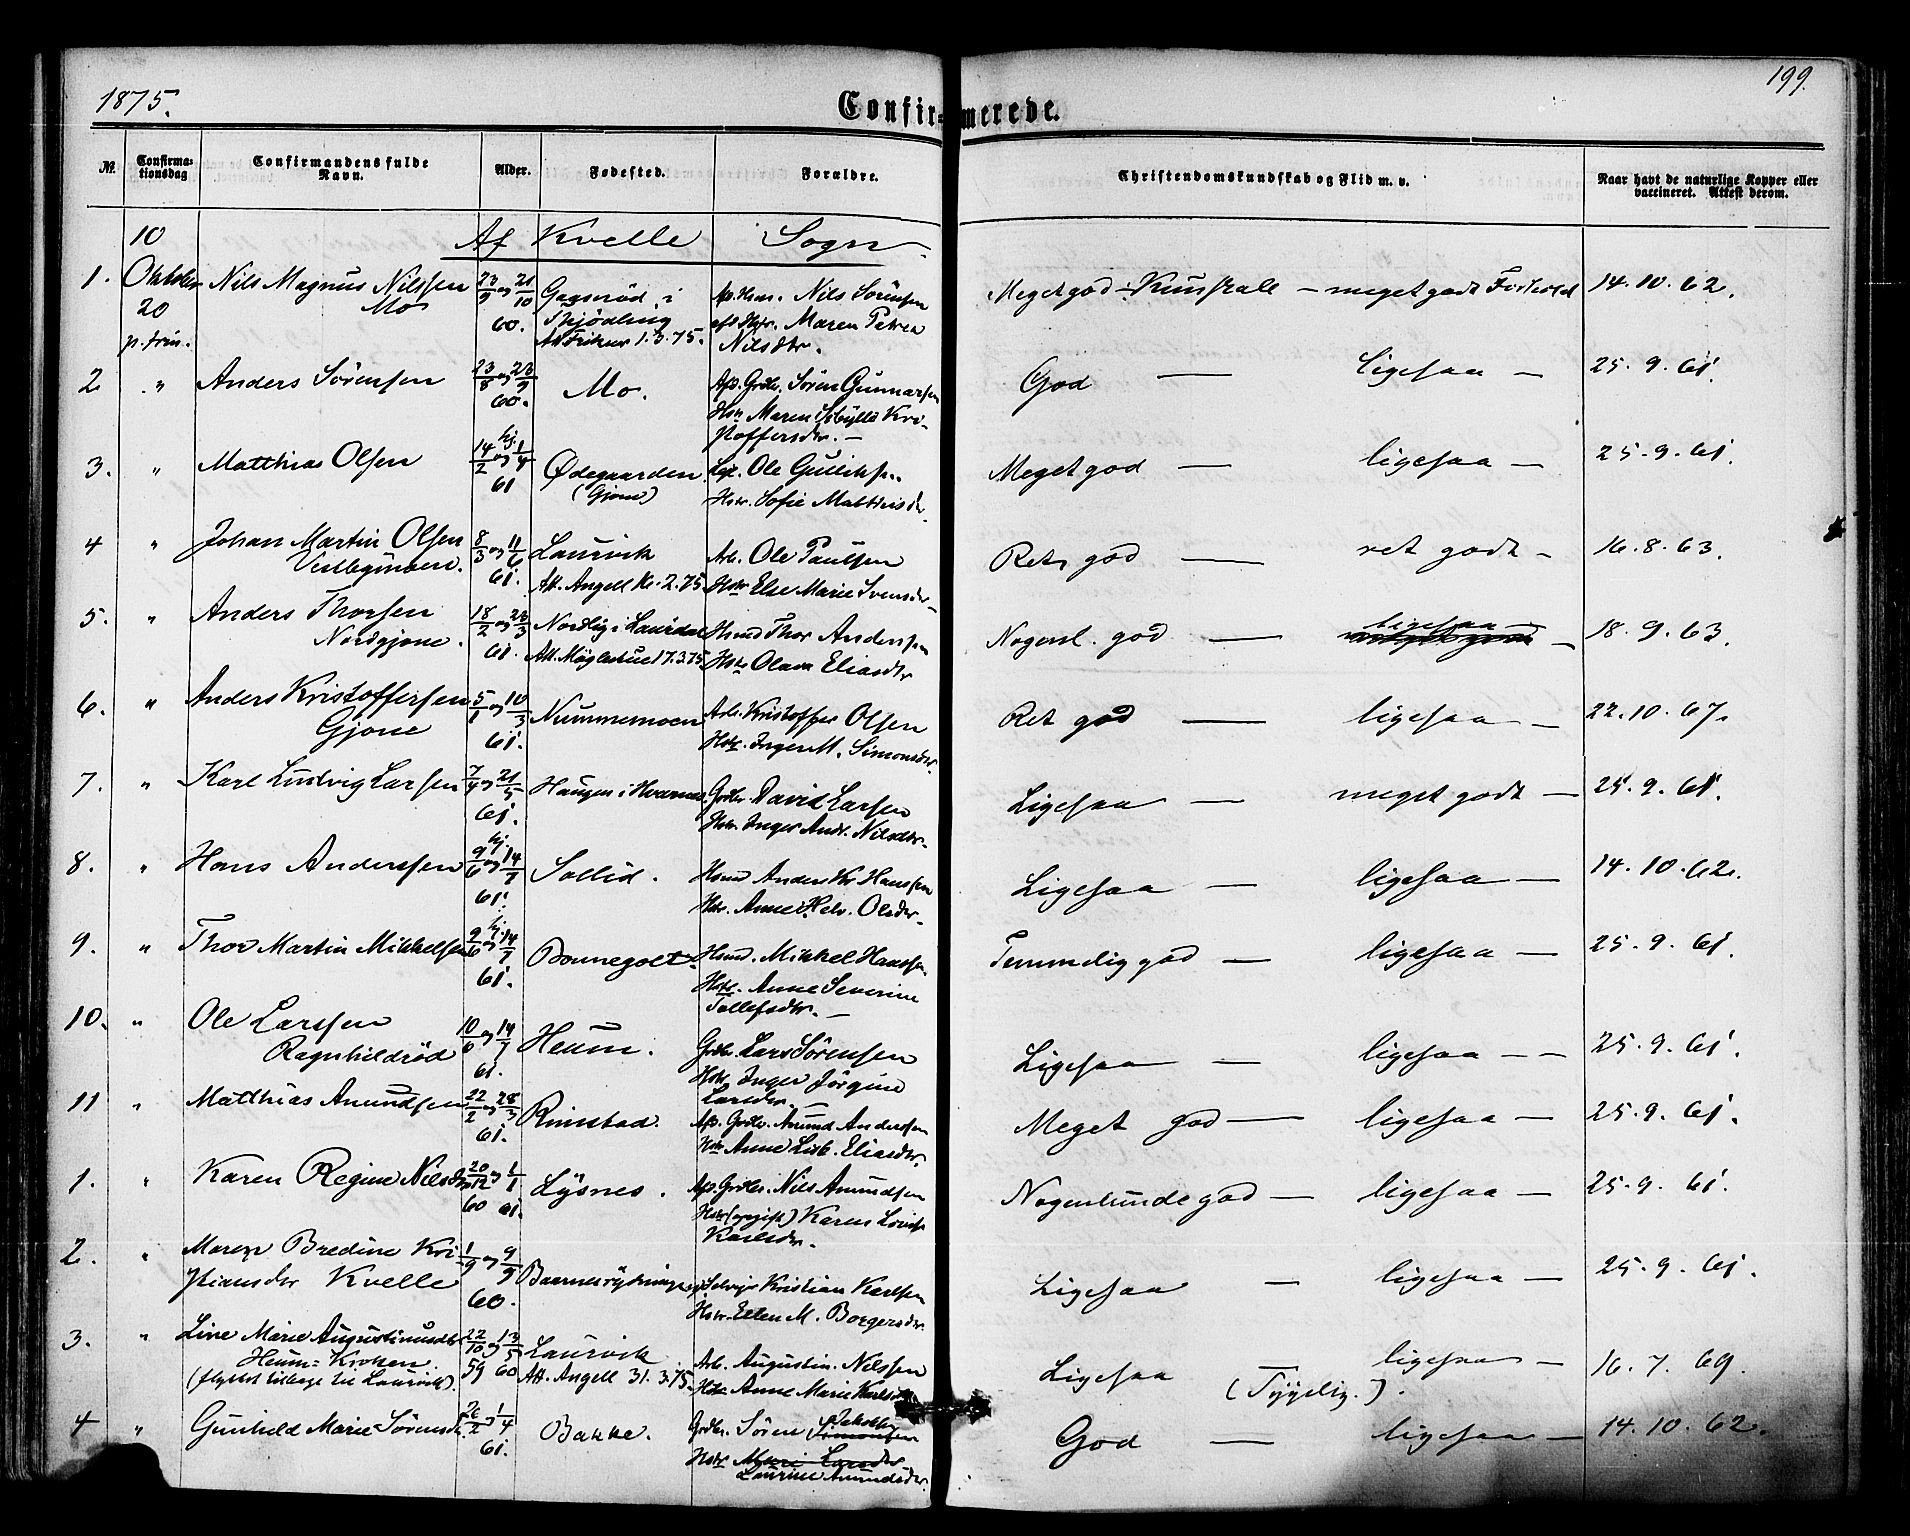 1875.
199.
Confirmerede.
№.
Confirmationsdag
Confirmandens fulde Navn.
Alder.
Fødested.
Forældre.
Christendomskundskab og Flid m. v.
Naar havt de naturlige Kopper eller vaccineret. Attest derom.
10
Af Kvelle Sogn
1. Oktober Nils Magnus Nilssen 23/9 og 21/10 i Ap. Nils Sörensen Meget god Kundskab — meget godt Forhold 14.10.62.
20 Mo 60. Skjödling Maren Petrea
p. trin. Att. 1.3.75. Nilsdtr.
2 " Anders Sörensen 23/8 og 23/9 Mo. Afs. Grdbr. Sören Gunnarsen God — ligesaa — 25.9.61.
60. Hstr. Maren Sibylla Kri-
stoffersdtr. —
3. " Matthias Olsen 14/2 og hj. 1/4 Ødegaarden Ole Gulliksen Meget god — ligesaa — 25.9.61.
61 (Gjone) Hstr. Sofie Matthisdr.
4 " Johan Martin Olsen 8/3 og 11/6 Laurvik Arb. Ole Paulsen Ret god — ret godt — 16.8.63.
61. Att. Angell 2.75 Hstr Else Marie Svensdr
5. " Anders Thorsen 18/2 og 23/3 Nordlig i Laurdal Hsmd Thor Anderssen Nogenl. god — ligesaa — 18.9.63.
Nordgjone. 61. Att. 17.3.75 Hstr Olava Eliasdtr
6. " Anders Kristoffersen 5/1 og 10/3 Nummemoen Arb. Kristoffer Olsen Ret god — ligesaa — 22.10.67.
Gjone 61. Hstr. Inger M. Simonsdtr.
7. " Karl Ludvig Larsen 7/4 og 21/5 Haugen i Hvarnes Grdbr David Larsen Ligesaa — meget godt — 25.9.61.
61. Hstr. Inger Andr. Nilsdtr.
8. " Hans Anderssen 9/6 og hj. 14/7 Sollid. Hsmd Anders Kr. Hanssen Ligesaa — ligesaa — 14.10.62.
61. Hstr. Anne Helv. Olsdtr.
9. " Thor Martin Mikkelsen 9/6 og hj. 14/7 Bonnegolt. Hsmd. Mikkel Hanssen Temmelig god — ligesaa — 25.9.61.
61. Hstr. Anne Severine
Tollefsdtr. —
10. " Ole Larssen 10/6 og 14/7 Heum. Grdbr. Lars Sörensen Ligesaa — ligesaa — — 25.9.61.
Ragnhildröd 61. Hstr Inger Jörgine
Larsdtr.
11 " Matthias Amundsen 22/2 og 28/3 Rimstad. Afs. Grdbr. Amund Anderssen Meget god — ligesaa — 25.9.61.
61. Hstr Anne Lisb. Eliasdtr.
1. " Karen Regine Nilsdtr 20/12 og 1/1 Lysnes. Afs. Grdbr. Nils Amundsen Nogenlunde god — ligesaa — 25.9.61.
60 61. Hstr (opgift) Karen Lovise
Karlsdtr.
2. " Maren Bredine Kri- 1/9 og 9/9 Kristian Karlsen Ligesaa — ligesaa — 25.9.61.
stiansdtr Kvelle 60. Hstr. Ellen M. Borgersdtr.
3. " Line Marie Augustinusdtr 22/10 og 13/5 Laurvik Arb. Augustin. Nilssen Ligesaa ligesaa — 16.7.69.
Heum-Kroken. 59 60 Att. Angell 31.3.75. Hstr Anne Marie Karlsdtr (Sygelig.).
(flyttet tilbage til Laurvik).
4 " Gunhild Marie Sörensdtr 26/2 og 1/4 Bakke. Grdbr. Sören Simonsen Jakobsen God — ligesaa — 14.10.62.
61. Hstr Marie Larsdtr
Laurine Amundsdtr.